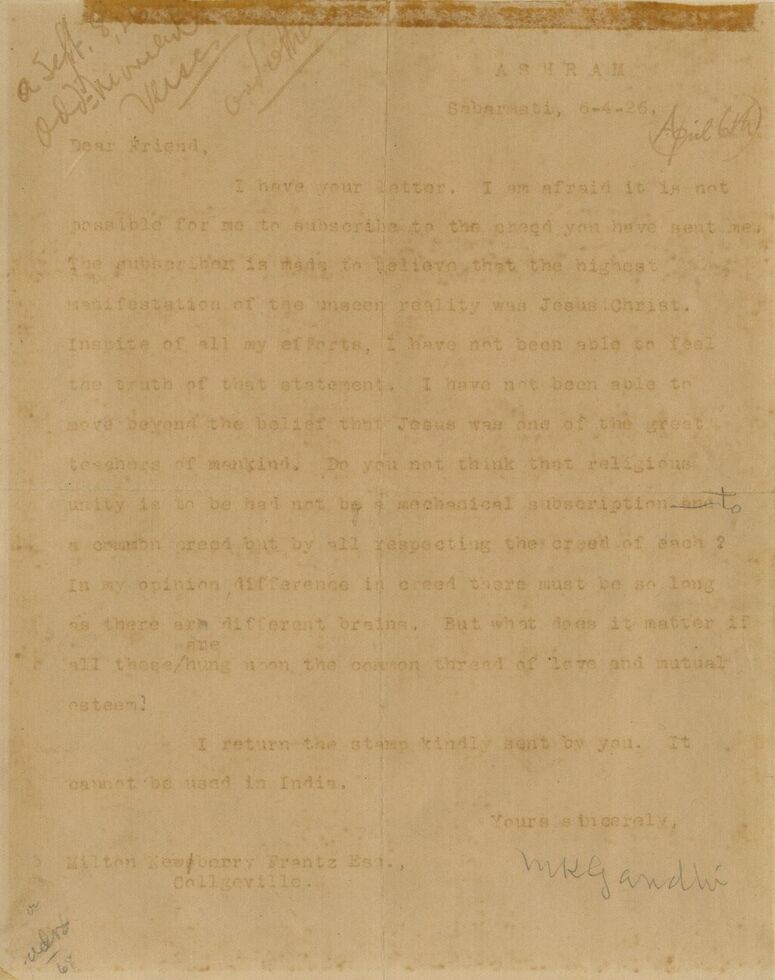 a Sept. 8,
Verse
A S H R A M
Sabarmati, 6-4-26.
(April 6th)
Dear Friend,
I have your letter. I am afraid it is not
possible for me to subscribe to the creed you have sent me.
The subscriber is made to believe that the highest
manifestation of the unseen reality was Jesus Christ.
Inspite of all my efforts, I have not been able to feel
the truth of that statement. I have not been able to
move beyond the belief that Jesus was one of the great
teachers of mankind. Do you not think that religious
unity is to be had not by a mechanical subscription and to
a common creed but by all respecting the creed of each ?
In my opinion difference in creed there must be so long
as there are different brains. But what does it matter if
are
all these/hung upon the common thread of love and mutual
esteem?
I return the stamp kindly sent by you. It
cannot be used in India.
Yours sincerely,
MKGandhi
Milton Newberry Frantz Esq.,
Collgeville.